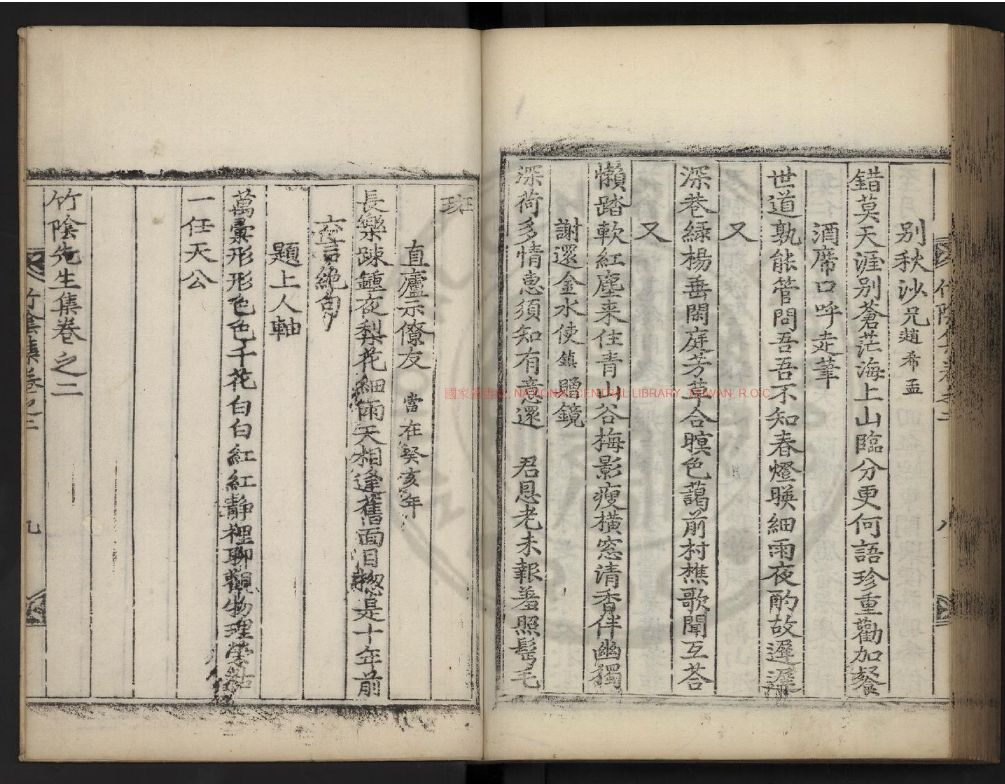 別秋沙兄趙希孟
錯莫天涯別蒼茫海上山臨分更何語珍重勸加餐
酒席口呼走筆
世道孰能管問吾吾不知春燈暎細雨夜酌故遲遲
又
深巷綠楊垂閑庭芳草合暝色藹前村樵歌聞互荅
又
懶踏軟紅塵来住青山谷梅影瘦橫窓清香伴幽獨
謝還金水使鎮贈鏡
深荷多情惠須知有意還 君恩老未報羞照髩毛
班
直廬示僚友當在癸亥年
長樂踈鍾夜梨花細雨天相逢舊面目揔是十年前
六言絶句
題上人軸
萬彙形形色色千花白白紅紅靜裡聊觀物理榮枯
一任天公
竹陰先生集卷之二
竹陰集卷之二 九
八
國家圖書館 NATIONAL CENTRAL LIBRARY, TAIWAN, R.O.C.